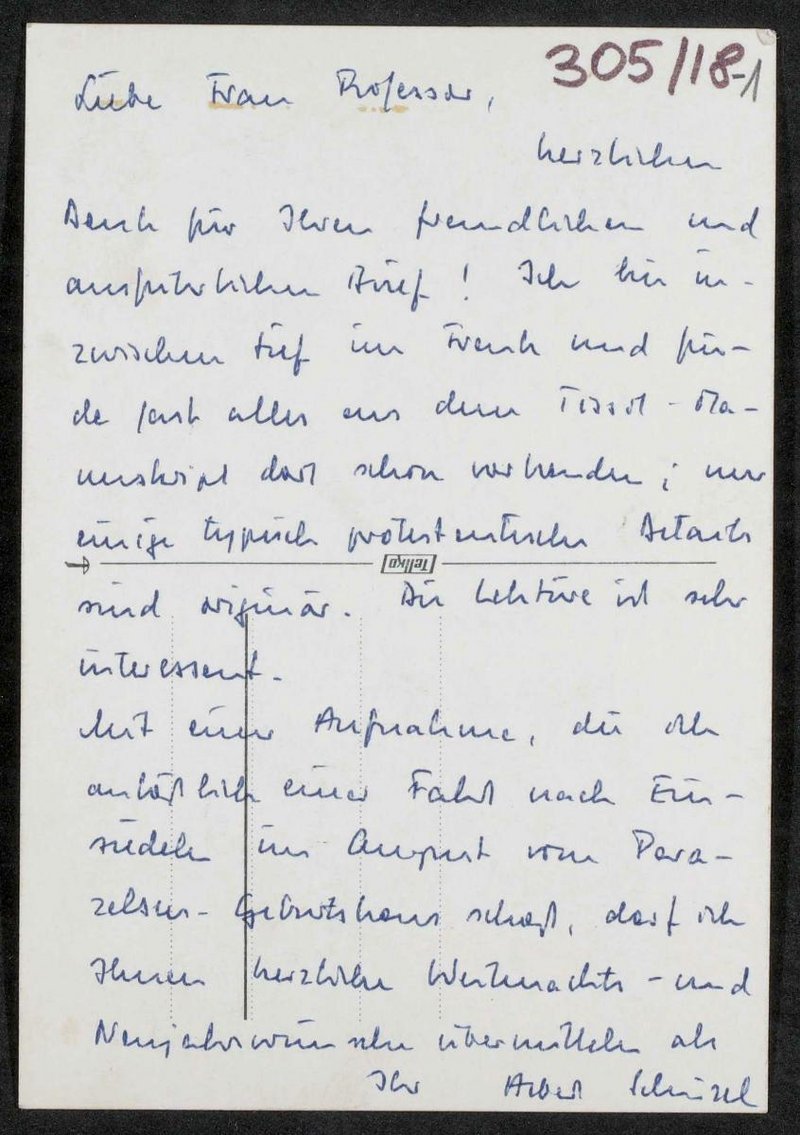 305/18-1
Liebe Frau Professor,
herzlichen
Dank für Ihren freundlichen und
ausführlichen Brief! Ich bin in-
zwischen tief im Frank und fin-
de fast alles aus dem Tissot-Ma-
nuskript dort schon vorhanden; nur
einige typisch protestantische Details
Tellko
sind originär. Die Lektüre ist sehr
interessant.
Mit einer Aufnahme, die ich
anläßlich einer Fahrt nach Ein-
siedeln im August vom Para-
zelsus-Geburtshaus schoß, darf ich
Ihnen herzliche Weihnachts- und
Neujahrswünsche übermitteln als
Ihr Albert